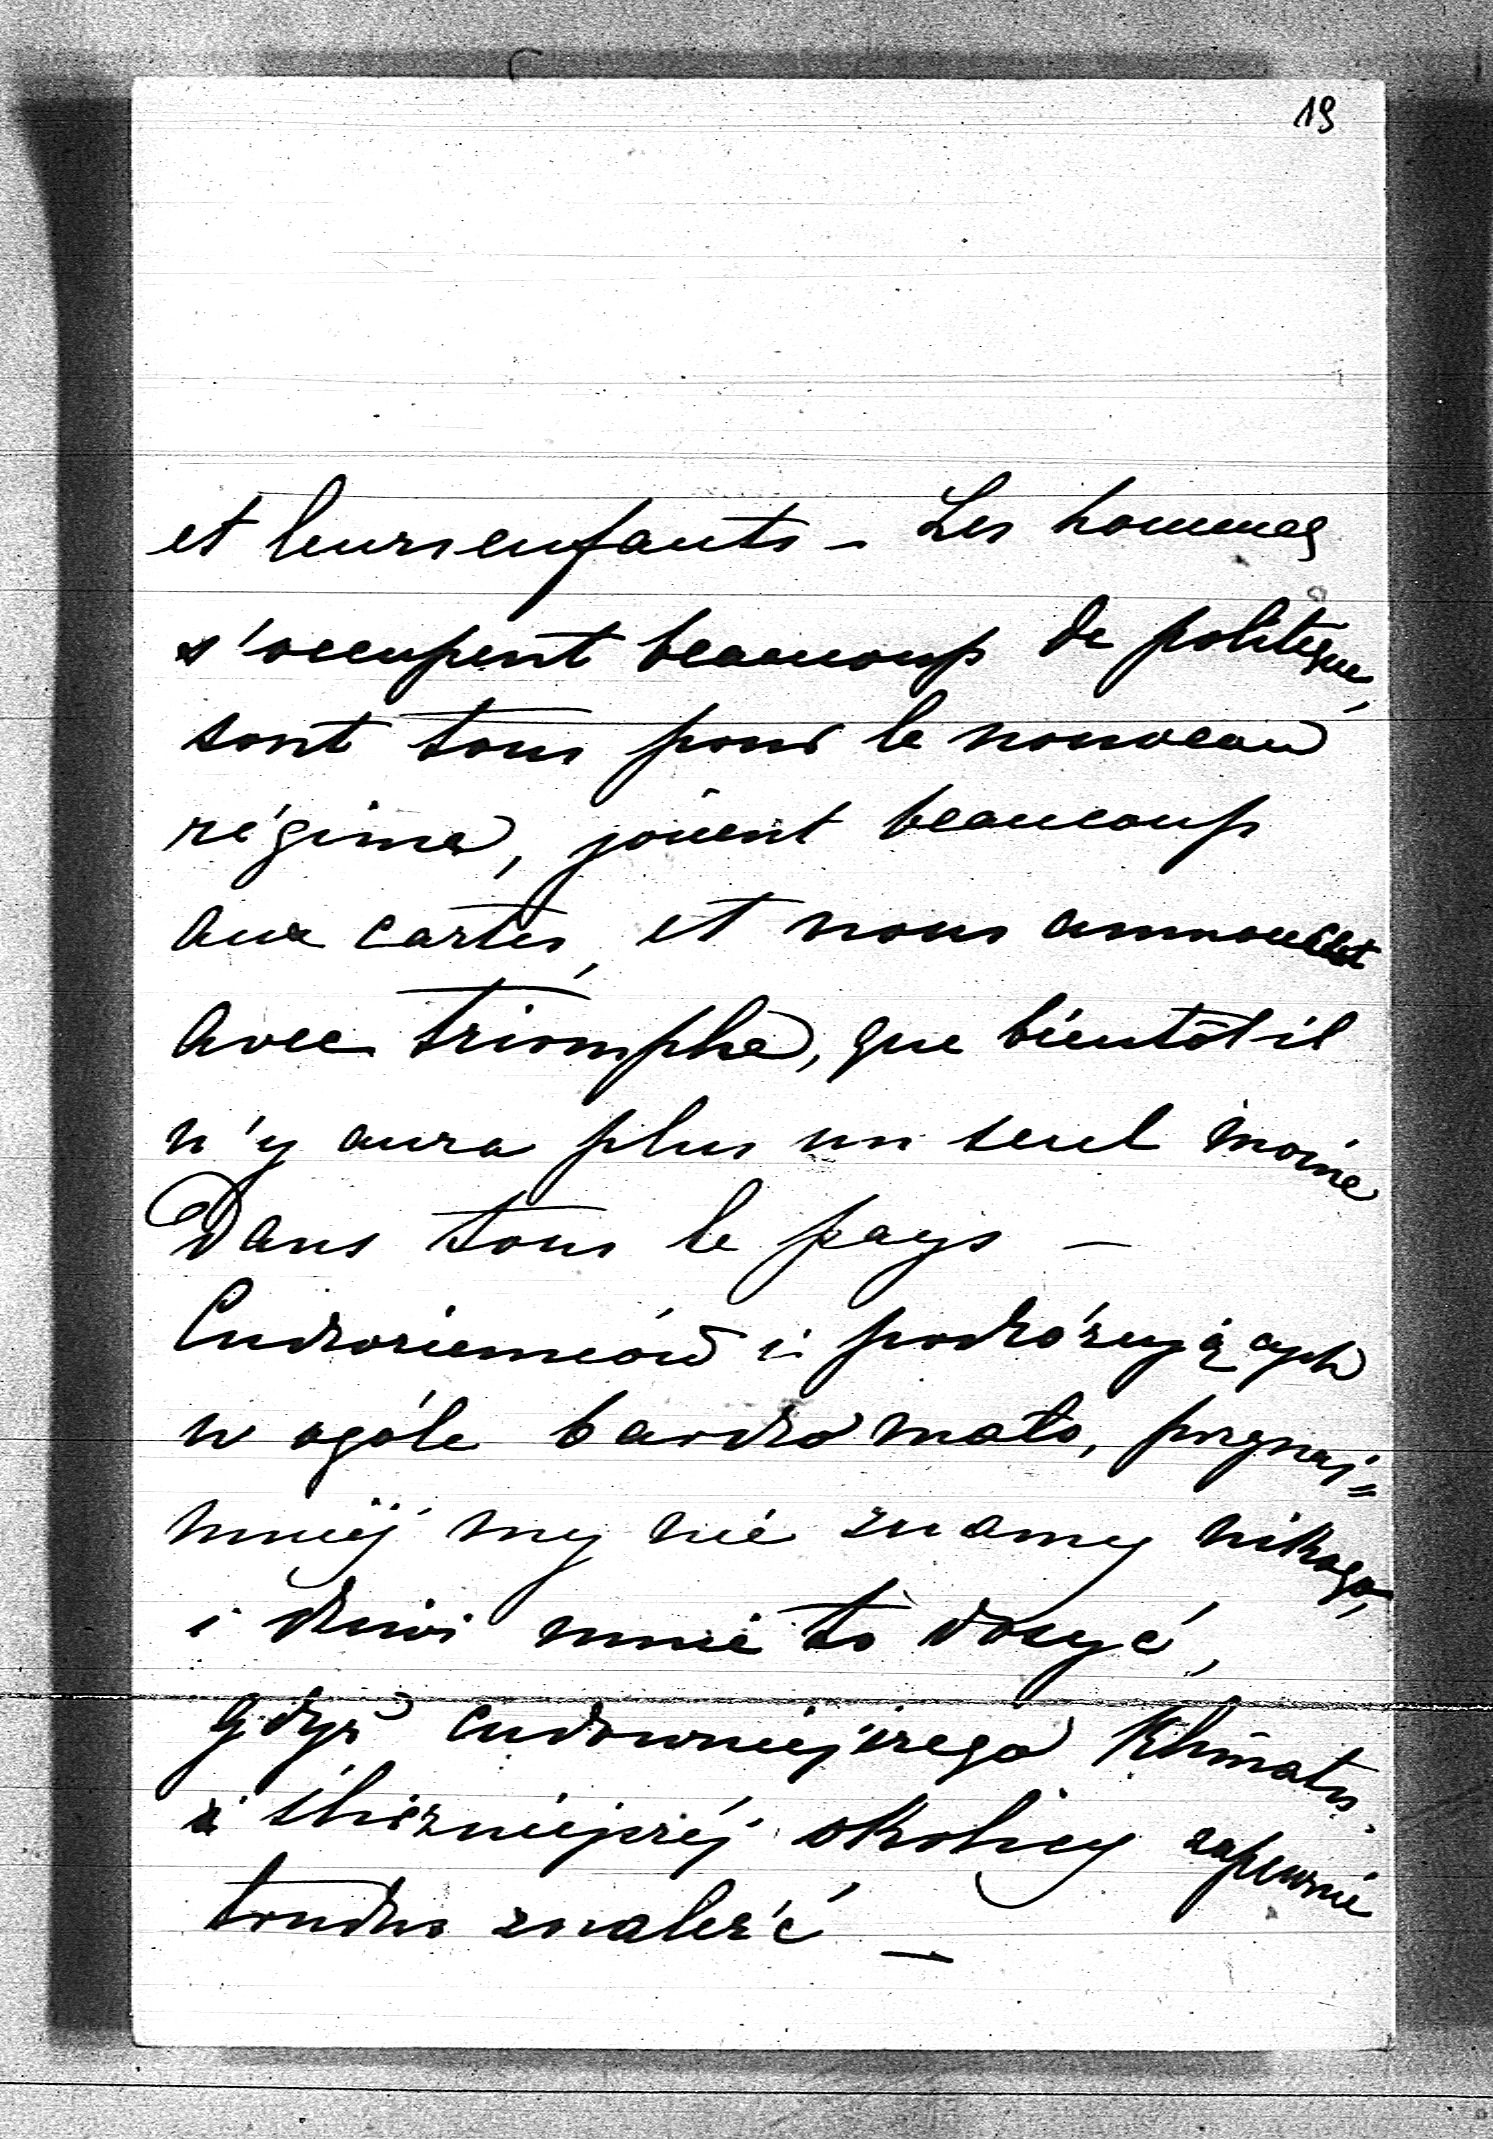 19
et leurs enfants – Les hommes
s'occupent beaucoup de politique,
sont tous pour le nouveau
régime, jouent beaucoup
aux cartes, et nous annoncent
avec triomphe, que bientôt il
n'y aura plus un seul moine
Dans tous le pays –
Cudzoziemców i podróżujących
w ogóle bardzo mało, przynaj=
mniéj my nie znamy nikogo,
i dziwi mnie to dosyć,
gdyż cudowniejszego klimatu
i śliczniejszéj okolicy zapewnie
trudno znaleźć –